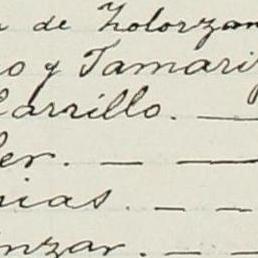 de Zolorzan
o y Tamariz
Carrillo. —
ler. — —
nias. — —
nzar. — —